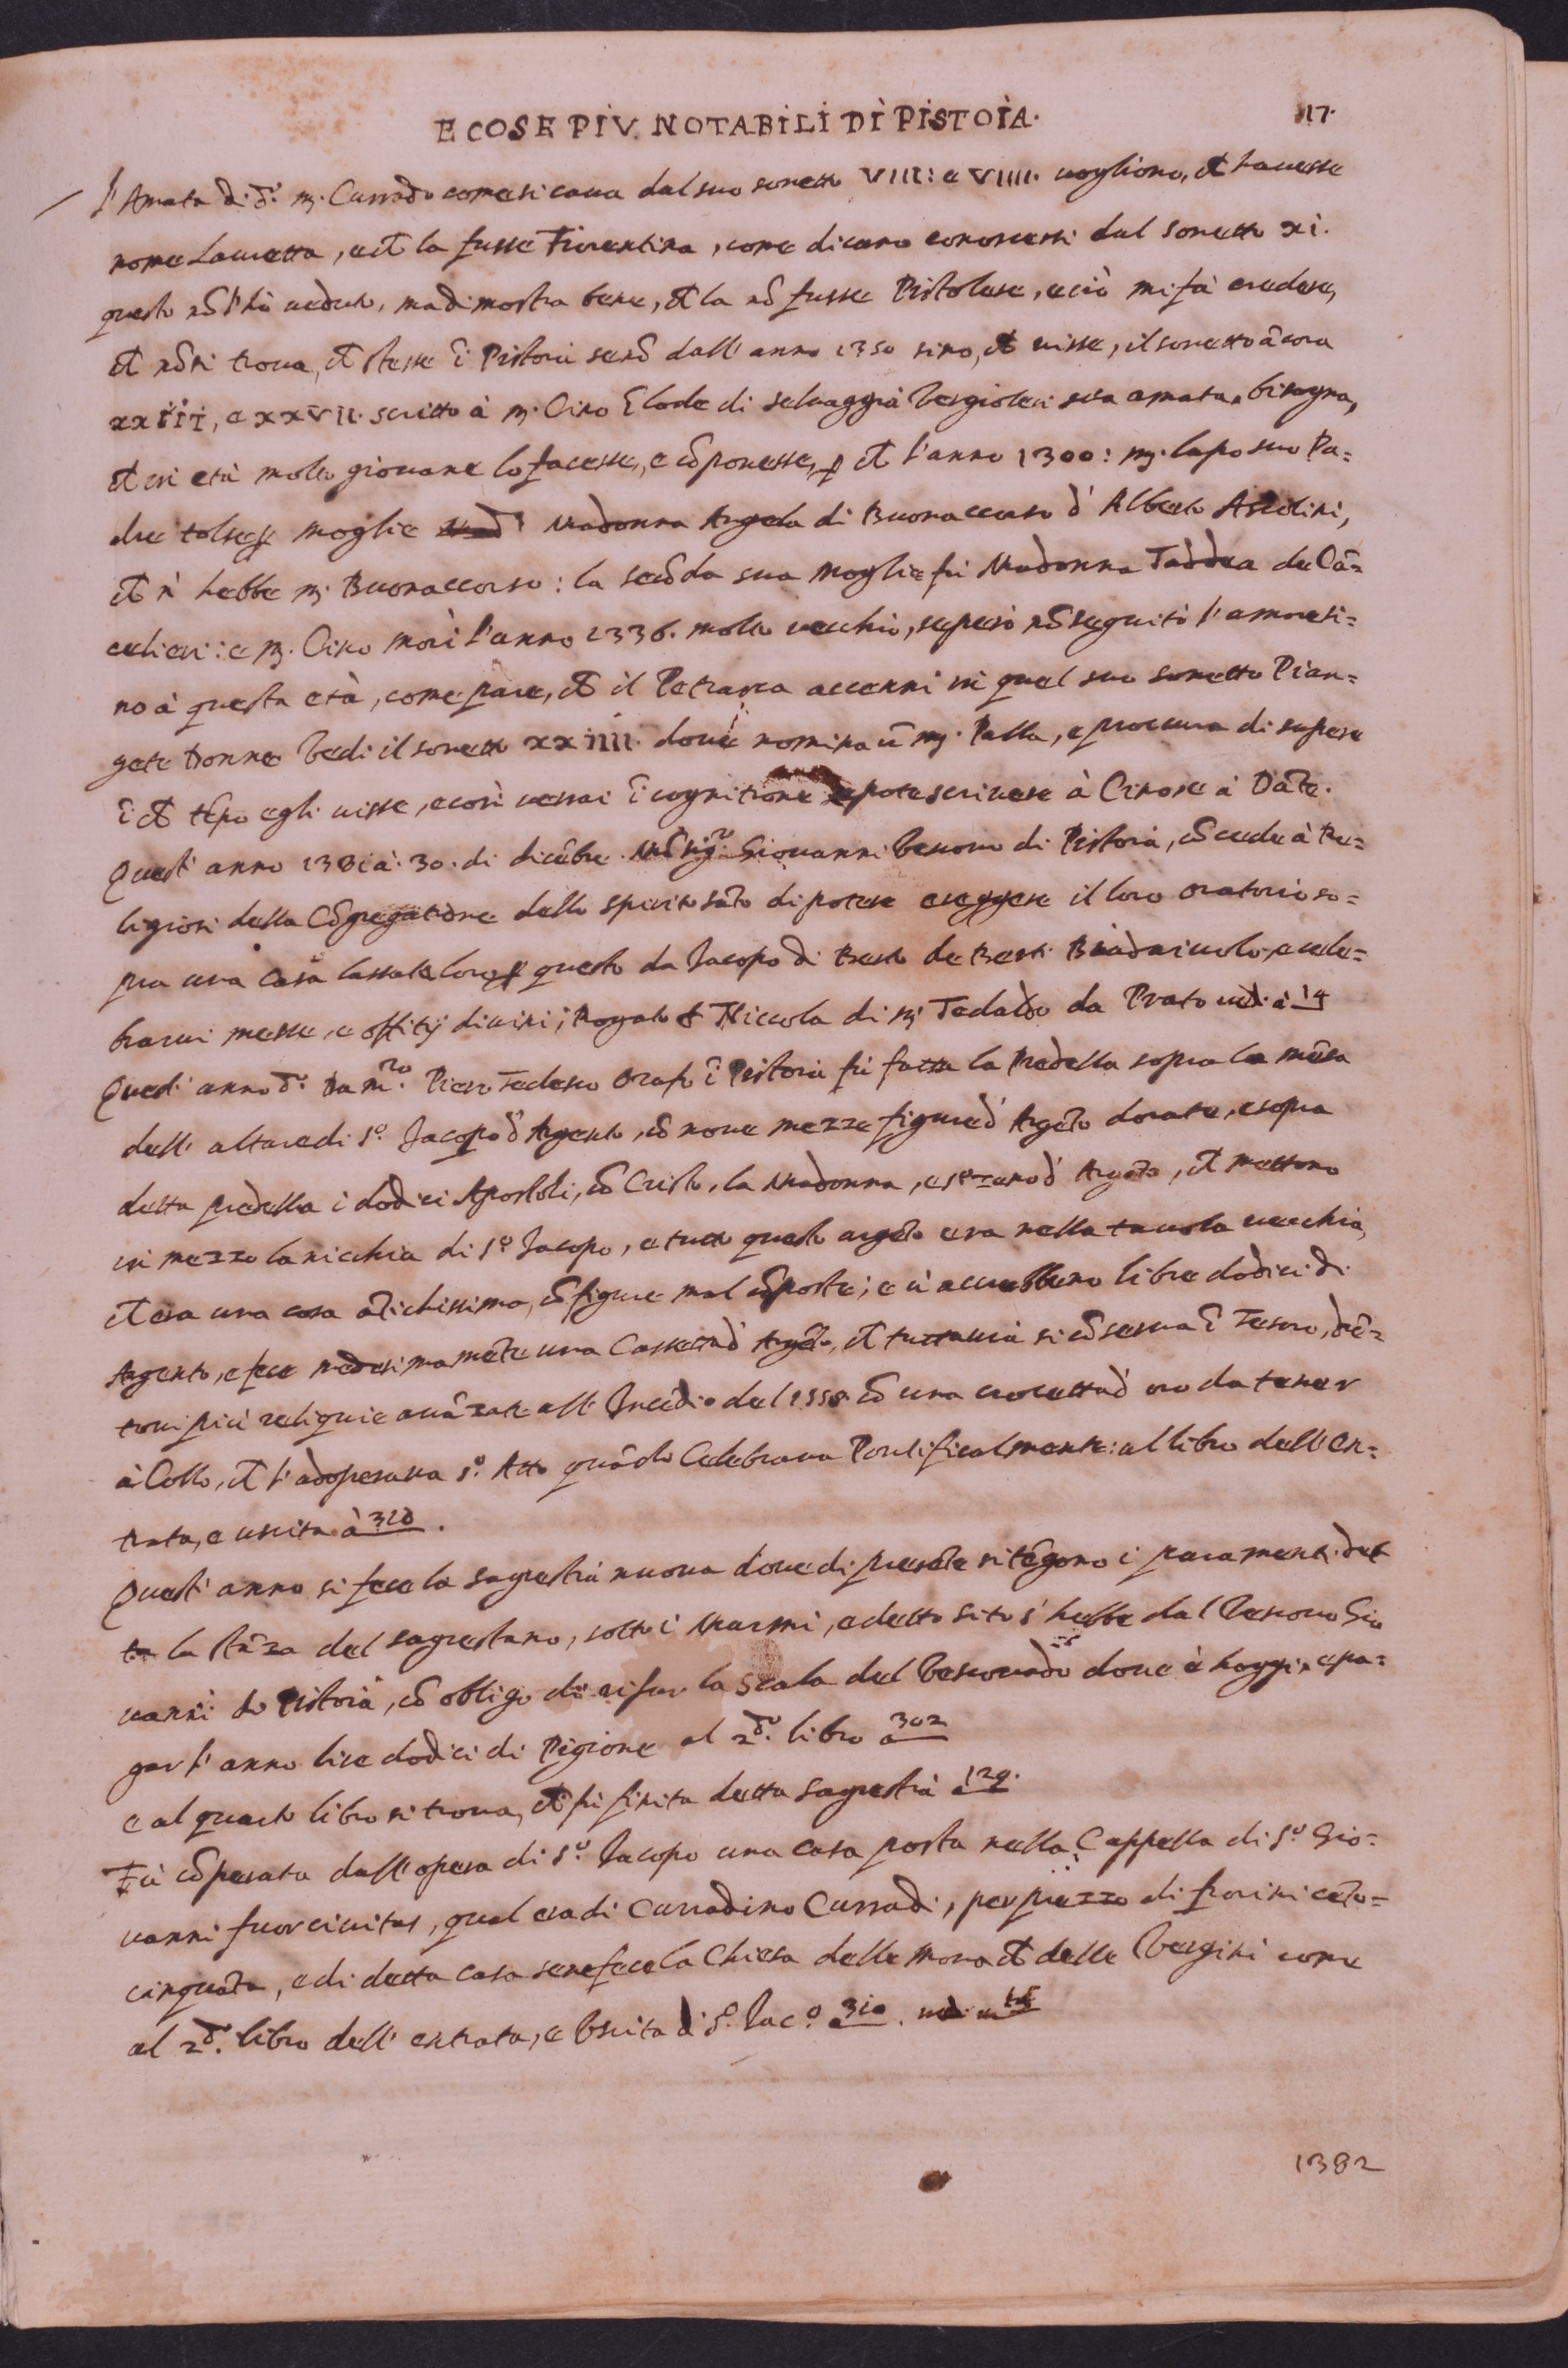 E COSE PIV NOTABILI DI PISTOIA.
17.
l'Amata di d.º m. Currado come si caua dal suo sonetto VIII: e VIIII. uogliono, ch hauesse
nome Lauretta, e ch la fusse Fiorentina, come dicano conoscersi dal sonetto xi.
questo nõ l'hò ueduto, ma dimostra bene, ch la nõ fusse Pistolese, e ciò mi fà credere,
ch nõ si troua, ch stesse ĩ Pistoia senõ dall'anno 1350 sino, ch uisse, il sonetto ãcora
xxiii, e xxvii. scritto à m. Cino ĩ lode di seluaggia Vergiolesi sua amata, bisogna,
ch in età molto giouane lo facesse, e cõponesse, ꝑ ch l'anno 1300: m. lapo suo Pa=
dre tolse ꝑ moglie Madonna Angela di Buonaccorso d'Alberto Asolini,
ch n'hebbe m. Buonaccorso: la secõda sua moglie fù Madonna Taddea de Cã=
celieri: e m. Cino morì l'anno 1336. molto uecchio, se però nõ seguitò l'amore si=
no à questa età, come pare, ch il Petrarca accenni in quel suo sonetto Pian=
gete Donne Vedi il sonetto xxiiii. doue nomina ũ m. Palla, e procura di sapere
ĩ ch tẽpo egli uisse, e così uerrai ĩ cognitione se potè scriuere à Cino, e à Dãte.
Quest'anno 1381 à 30. di dicẽbre. Mõsig.ro Giouanni Vescouo di Pistoia, cõcede à Re=
ligiosi della Cõgregatione dello spirito sãto di potere ereggere il loro oratorio so=
pra una casa lassata loro ꝑ questo da Jacopo di Berto de Berti Biadaiuolo, e cele=
brarui messe, e offitij diuini; Rogato S. Niccola di S. Tedaldo da Prato uedi à 14
Quest'anno d.º Da m.ro Piero Tedesco Orafo ĩ Pistoia fù fatta la Predella sopra la mẽsa
dell'altare di S.º Jacopo d'Argento, cõ noue mezze figure d'Argẽto dorate, e sopra
detta predella i dodici Apostoli, cõ Cristo, la Madonna, e s'erano d'Argẽto, ch mettono
in mezzo la nicchia di S.º Jacopo, e tutto questo argẽto era nella tauola uecchia,
ch era una cosa ãtichissima, cõ figure mal cõposte; e ui accrebbeno libre dodici di
Argento, e fece medesimamẽte una Cassetta d'Argẽto, ch tuttauia si cõserua ĩ Tesoro, drẽ=
toui più reliquie auãzate all'Incẽdio del 1558 cõ una crocetta d'oro da tener
à Collo, ch l'adoperaua S.º Atto quãdo Celebraua Pontificalmente: al libro dell'en=
trata, e uscita à 310.
Quest'anno si fece la sagrestia nuoua doue di presẽte si tẽgono i paramenti
la stãza del sagrestano, sotto i Marmi, e detto sito s'hebbe dal Vescouo Gio
uanni di Pistoia, cõ obligo di rifar la scala del Vescouado doue è hoggi, e pa=
gar l'anno lire dodici di Pigione al 2.dº libro à 302
e al quarto libro si troua, ch fù finita detta Sagrestia à 129.
Fù cõperata dall'opera di S.º Jacopo una casa posta nella Cappella di S.º Gio=
uanni fuorciuitas, qual era di Curradino Curradi, per prezzo di fiorini cẽto=
cinquãta, e di detta casa se ne fece la Chiesa delle Monach delle Vergini come
al 2.dº libro dell'entrata, e Uscita di S. Jac.º 310. uedi
1382